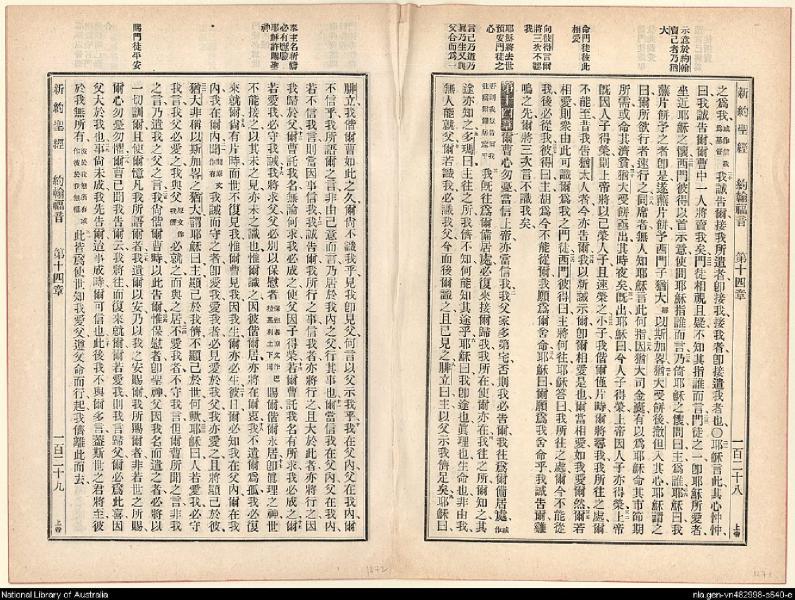 新約聖經 約翰福音 第十四章 一百二十八
示意於約翰
賣己者乃猶
大
命門徒彼此
相愛
向彼得言爾
將三次不認
我
耶穌將去世
預安門徒之
心
言己乃道乃
眞乃生又與
父合而爲一
我誠告爾接我所遣者即接我接我者即接遣我者也〇耶穌言此其心忡忡
曰我誠告爾爾曹中一人將賣我矣門徒相視且疑不知其指誰而言門徒之一即耶穌所愛者
坐近耶穌之懷西門彼得以首示意使問耶穌指誰而言乃倚耶穌之懷問曰主爲誰耶穌曰我
蘸片餅予之者即是遂蘸片餅予西門子猶大
以斯加畧猶大受餅後撒但入其心耶穌謂之
曰爾所欲行者速行之同席者無人知耶穌言此何指因猶大司金囊有以爲耶穌命其市節期
所需或命其濟貧猶大受餅亟出其時夜矣既出耶穌曰今人子得榮上帝因人子亦得榮上帝
既因人子得榮則上帝將以己榮人子且速榮之小子我偕爾僅片時爾將尋我我所往之處爾
不能至昔我告猶太人者今亦告爾我以新誡示爾即爾相愛是也爾當相愛如我愛爾然爾若
相愛則衆由此可識爾爲我之門徒西門彼得曰主將何往耶穌答曰我所往之處爾今不能從
我後必從我彼得曰主胡爲今不能從爾我願爲爾舍命耶穌曰爾願爲我舍命乎我誠告爾雞
鳴之先爾將三次言不識我矣
第十四章 爾曹心勿憂當信上帝亦當信我我父家多第宅否則我必告爾我往爲爾備居處
我既往爲爾備居處必復來接爾歸我我所在使爾亦在我往之所爾知之其
途亦知之多瑪曰主往之所我儕不知何能知其途乎耶穌曰我即途也眞理也生命也非由我
無人能就父爾若識我必識我父今而後爾識之且已見之腓立曰主以父示我儕足矣耶穌曰
奉主名祈禱
必有應驗
耶穌許賜聖
神
賜門徒平安
腓立我偕爾曹如此之久爾尚不識我乎見我即見父何言以父示我乎我在父內父在我內
不信乎我所語爾之言非由己意而言乃居於我內之父行其事也爾當信我在父內父在我內
若不信我言則當因事信我我誠告爾我所行之事信我者亦將行之且大於此者亦將行之因
我歸於父爾曹託我名無論何求我必成之使父因子得榮若爾曹託我名有所求我必成之爾
若愛我必守我誡我將求父父必別以保惠者
賜爾偕爾永居即眞理之神世
不能接之以其未之見亦未之識也惟爾識之因彼偕爾居亦將在爾衷我不遺爾爲孤我必復
來就爾尚有片時而世不復見我惟爾曹見我因我生爾亦必生彼日爾必知我在父內爾在我
內我在爾內聞
我誡而守之者即愛我愛我者必見愛於我父我亦愛之且將顯己於彼
猶大非稱以斯加畧之猶大謂耶穌曰主顯己於我儕不顯己於世何歟耶穌曰人若愛我必守
我言我父必愛之我與父
必就之而與之居不愛我者不守我言但爾曹所聞之言非我
之言乃遣我之父之言我尚偕爾曹時以此告爾惟保惠者即聖神父因我名而遣之者必將以
一切訓爾且使爾憶凡我所語爾者我遺爾以安乃以我之安賜爾我所賜爾者非若世之所賜
爾心勿憂勿懼爾曹已聞我告爾云我將往而復來就爾爾若愛我則我言歸父爾必爲此喜因
父大於我也事尚未成我先告爾迨事成時爾可信也此後我不與爾多言蓋斯世之君將至彼
於我無所有
此皆爲使世知我愛父遵父命而行起我儕離此而去
新約聖經 約翰福音 第十四章 一百二十九
National Library of Australia
nla.gen-vn482998-s640-e